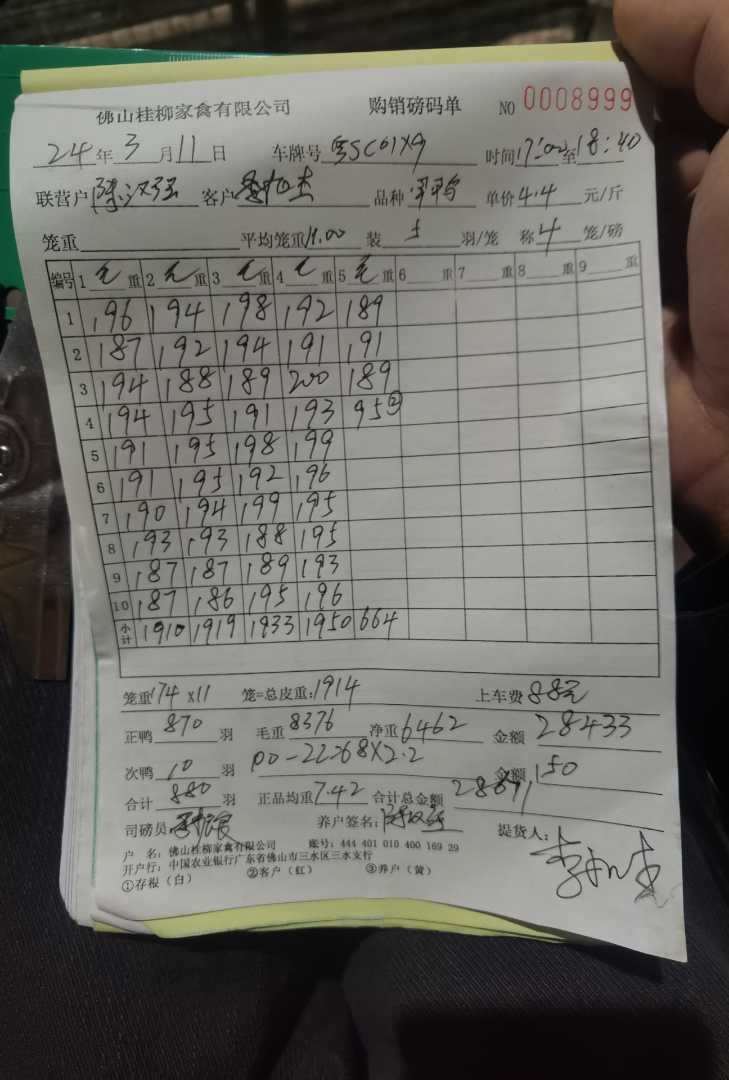 佛山桂柳家禽有限公司 购销磅码单 NO 0008999
24年3月11日 车牌号 时间17:00至18:40
联营户陈汉强 客户 品种 单价4.4元/斤
笼重 平均笼重11.00 装 羽/笼 称4笼/磅
编号 1毛重 2毛重 3毛重 4毛重 5毛重 6 重 7 重 8 重 9 重
1 196 194 198 192 189
2 187 192 194 191 191
3 194 188 189 200 189
4 194 195 191 193 95②
5 191 195 198 199
6 191 195 192 196
7 190 194 199 195
8 193 193 188 195
9 187 187 189 193
10 187 186 195 196
小计 1910 1919 1933 1950 664
笼重174×11 笼=总皮重:1914 上车费88元
正鸭870羽 毛重8376 净重6462 金额28433
次鸭10羽 22.68×2.2 金额150
合计880羽 正品均重7.42 合计总金额
司磅员 养户签名: 提货人:
户 名:佛山桂柳家禽有限公司 账号:444 401 010 400 169 29
开户行:中国农业银行广东省佛山市三水区三水支行
①存根(白) ②客户(红) ③养户(黄)